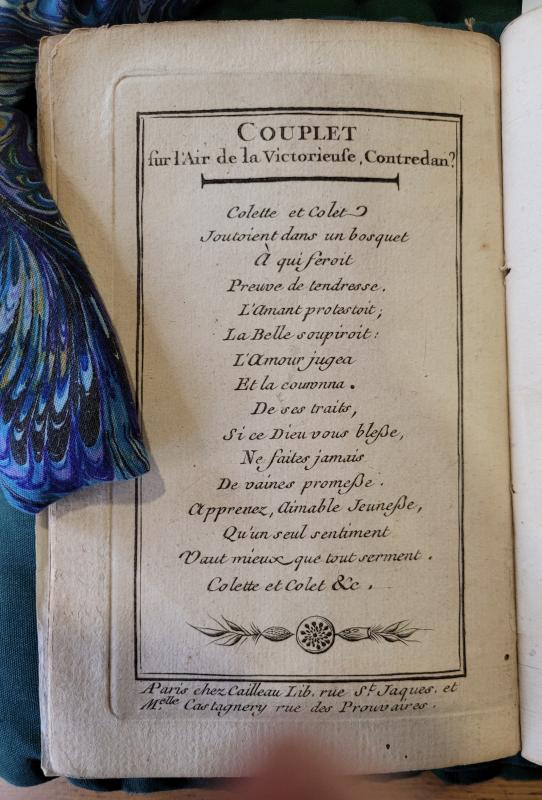 COUPLET
ſur l'Air de la Victorieuſe, Contredan.ᵉ
Colette et Colet
Joutoient dans un bosquet
À qui feroit
Preuve de tendresse.
L'Amant protestoit;
La Belle soupiroit:
L'Amour jugea
Et la couronna.
De ses traits,
Si ce Dieu vous bleſse,
Ne faites jamais
De vaines promeſse.
Apprenez, Aimable Jeuneſse,
Qu'un seul sentiment
Vaut mieux que tout serment.
Colette et Colet &c.
A Paris chez Cailleau Lib. rue Sᵗ. Jaques. et
M.ᵉˡˡᵉ Castagnery rue des Prouvaires.